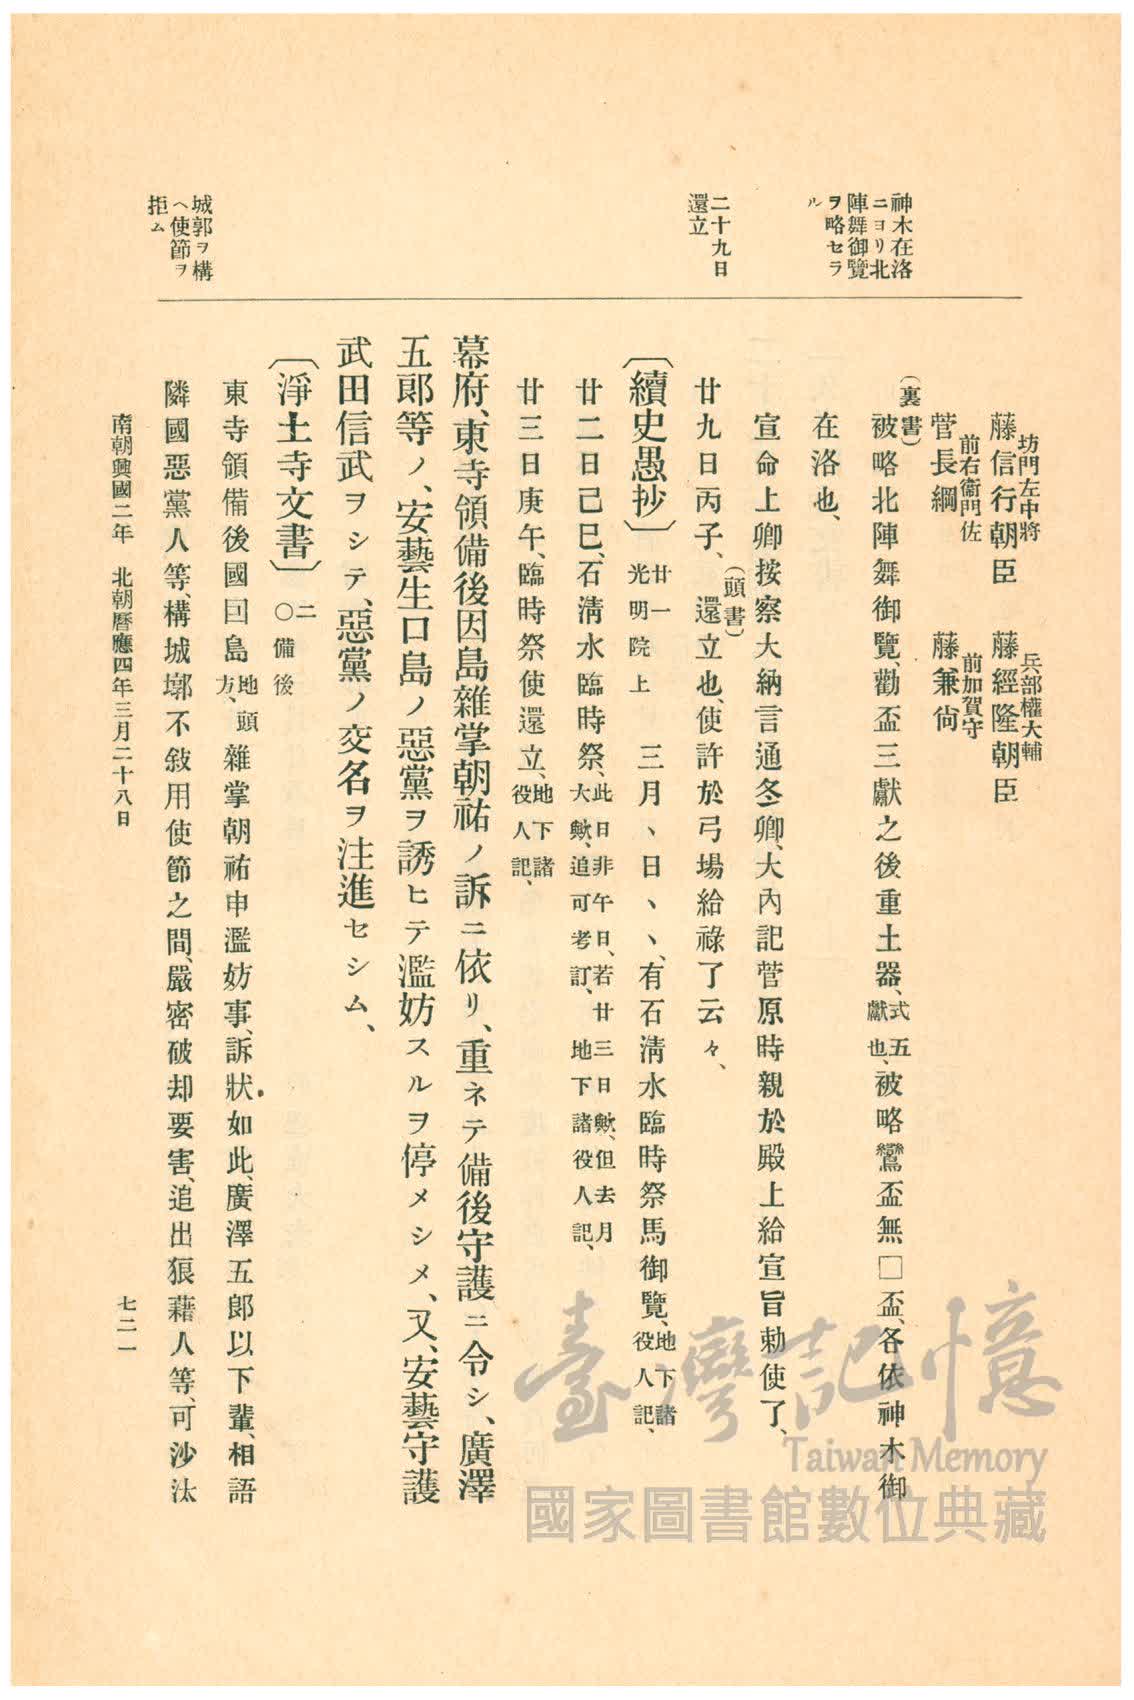 神木在洛
ニヨリ北
陣舞御覽
ヲ略セラ
ル
二十九日
還立
城郭ヲ構
ヘ使節ヲ
拒ム
坊門左中將
藤信行朝臣
兵部權大輔
藤經隆朝臣
前右衞門佐
菅長綱
前加賀守
藤兼尙
(裏書)
被略北陣舞御覽、勸盃三獻之後重土器、式五獻也、被略鸞盃無□盃、各依神木御
在洛也、
宣命上卿按察大納言通冬卿、大內記菅原時親於殿上給宣旨勅使了、
(頭書)
廿九日丙子、還立也、使許於弓場給祿了云々、
〔續史愚抄〕 廿一 光明院上 三月、日、、、有石淸水臨時祭馬御覽、地下諸役人記、
廿二日己巳、石淸水臨時祭、此日非午日、若廿三日歟、但去月大歟、追可考訂、地下諸役人記、
廿三日庚午、臨時祭使還立、地下諸役人記、
幕府、東寺領備後因島雜掌朝祐ノ訴ニ依リ、重ネテ備後守護ニ令シ、廣澤
五郞等ノ、安藝生口島ノ惡黨ヲ誘ヒテ濫妨スルヲ停メシメ、又、安藝守護
武田信武ヲシテ、惡黨ノ交名ヲ注進セシム、
〔淨土寺文書〕 二 ○備後
東寺領備後國回島地頭方、雜掌朝祐申濫妨事、訴狀如此、廣澤五郞以下輩、相語
隣國惡黨人等、構城墎不敍用使節之間、嚴密破却要害、追出狼藉人等、可沙汰
南朝興國二年 北朝曆應四年三月二十八日
七二一
臺灣記憶
Taiwan Memory
國家圖書館數位典藏